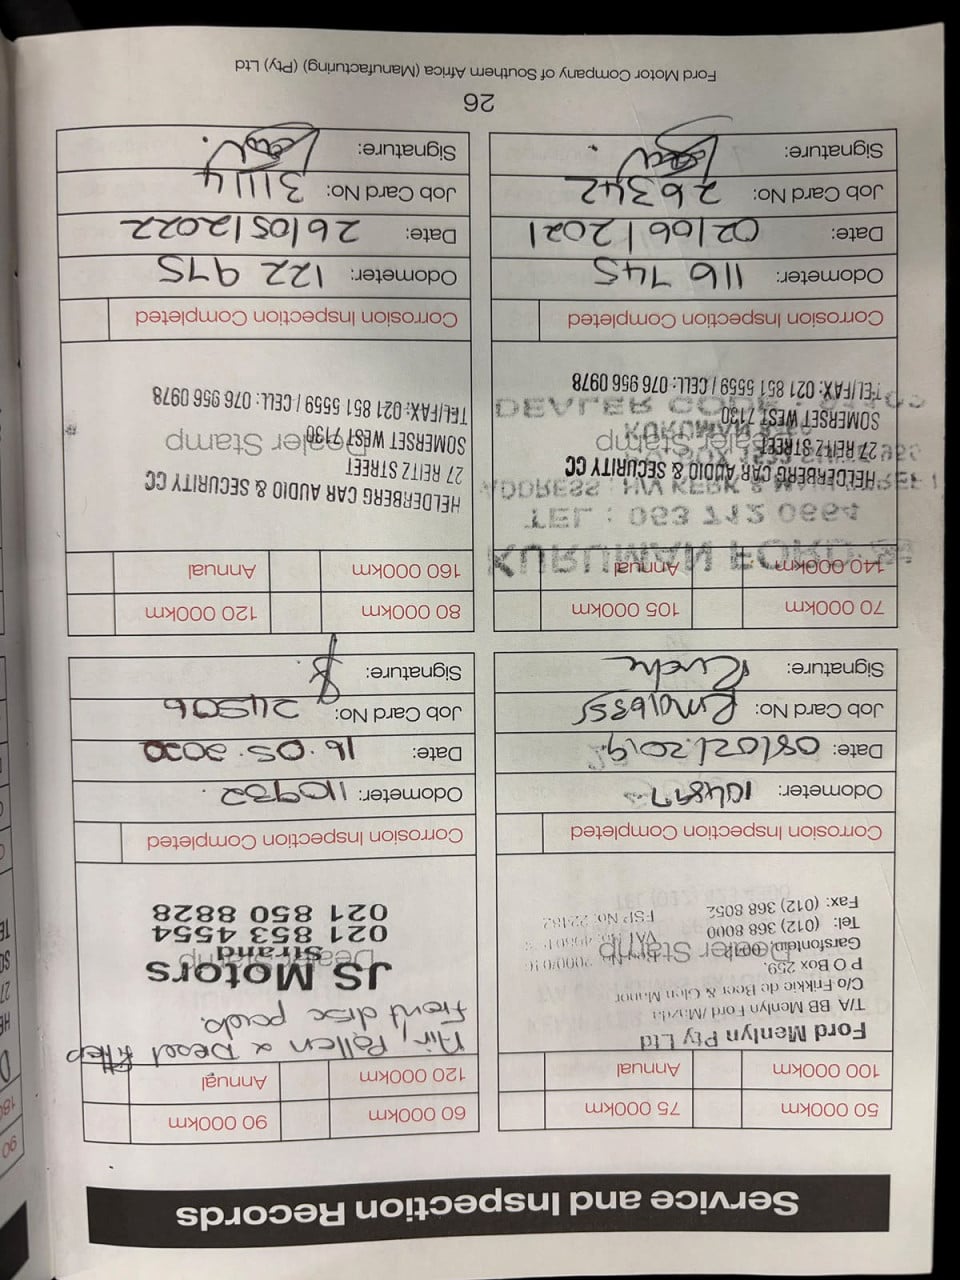 Service and Inspection Records
50 000km
75 000km
100 000km
Annual
Ford Menlyn Pty Ltd
T/A BB Menlyn Ford /Mazda
C/o Frikkie de Beer & Glen Manor
P O Box 259,
Garsfontein,
Dealer Stamp
Tel: (012) 368 8000
VAT
Fax: (012) 368 8052
FSP No. 22482
Corrosion Inspection Completed
Odometer: 104897
Date: 08/02/2019
Job Card No:
Signature:
60 000km
90 000km
120 000km
Annual
Air, Pollen & Diesel filter
front disc pads.
JS Motors
Dealer Stamp
strand
021 853 4554
021 850 8828
Corrosion Inspection Completed
Odometer: 110932.
Date: 16.05.2020
Job Card No: 24906
Signature:
70 000km
105 000km
140 000km
Annual
KURUMAN FORD
TEL : 053 712 0664
HELDERBERG CAR AUDIO & SECURITY CC
27 REITZ STREET
Dealer Stamp
KURUMAN
SOMERSET WEST 7130
DEALER CODE :
TEL/FAX: 021 851 5559 / CELL: 076 956 0978
Corrosion Inspection Completed
Odometer: 116 745
Date: 02/06/2021
Job Card No: 26342
Signature:
80 000km
120 000km
160 000km
Annual
HELDERBERG CAR AUDIO & SECURITY CC
27 REITZ STREET
Dealer Stamp
SOMERSET WEST 7130
TEL/FAX: 021 851 5559 / CELL: 076 956 0978
Corrosion Inspection Completed
Odometer: 122 975
Date: 26/05/2022
Job Card No: 31114
Signature:
26
Ford Motor Company of Southern Africa (Manufacturing) (Pty) Ltd